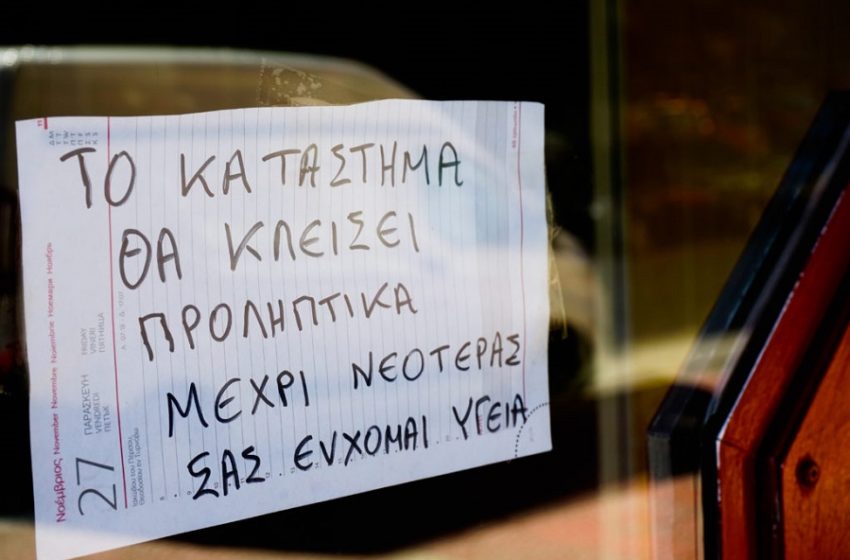 ΤΟ ΚΑΤΑΣΤΗΜΑ
ΘΑ ΚΛΕΙΣΕΙ
ΠΡΟΛΗΠΤΙΚΑ
ΜΕΧΡΙ ΝΕΟΤΕΡΑΣ
ΣΑΣ ΕΥΧΟΜΑΙ ΥΓΕΙΑ
Νοέμβριος November Novembre Noiembrie Ноябрь
27
ΠΑΡΑΣΚΕΥΗ FRIDAY
VENDREDI VINERI